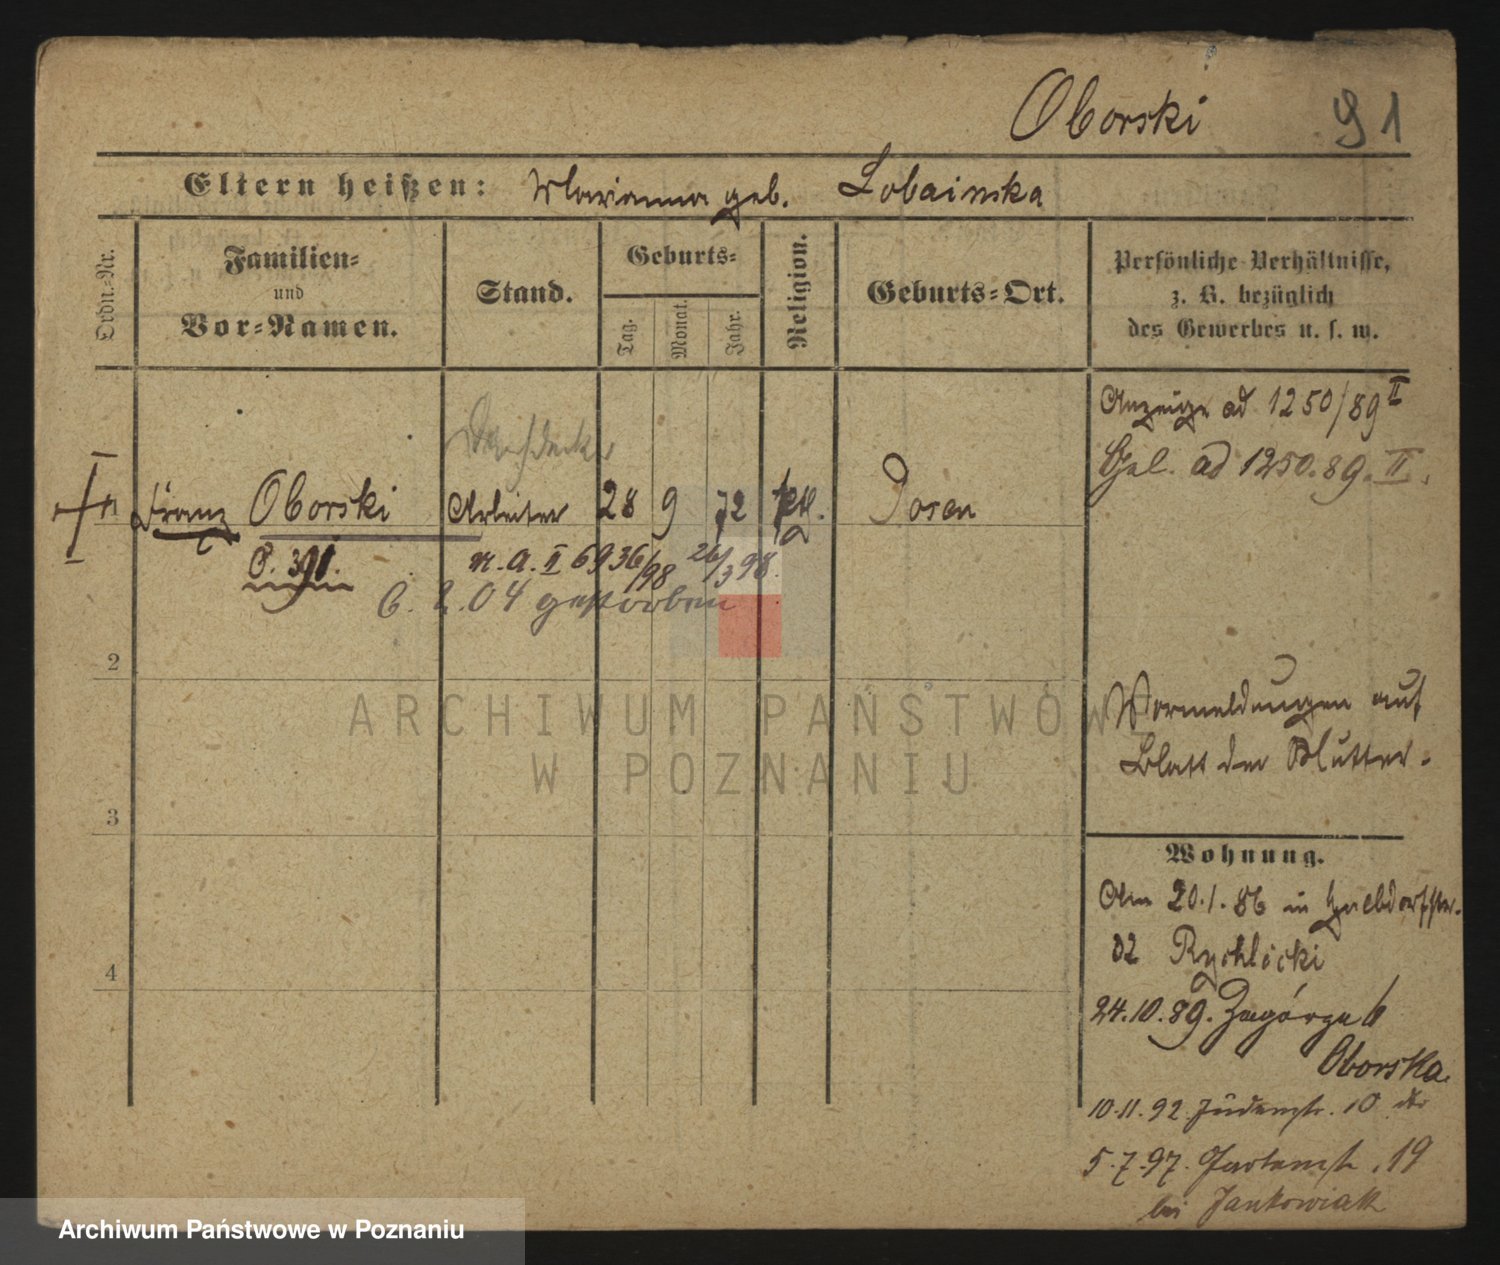 Oborski 91
Eltern heißen: Marianna geb. Lobainska
Ordn.-Nr.
Familien-
und
Vor-Namen.
Stand.
Geburts-
Tag.
Monat.
Jahr.
Religion.
Geburts-Ort.
Persönliche Verhältnisse,
z. B. bezüglich
des Gewerbes u. s. w.
Anzeige ad 1250/89 II
Gel. ad 1250.89. II.
Dachdecker
1 Franz Oborski Arbeiter 28 9 72 kth. Posen
C. 391. n. a. II 6936/98 26/3 98.
6. 2. 04 gestorben
2
Vormeldungen auf
Blatt der Mutter.
3
Wohnung.
Am 20.1.86 in
02 Rychlicki
4
24.10.89. Zagórze 6
Oborska
10.11.92. Judenstr. 10
5.7.97. Gartenstr. 19
bei Jankowiak
ARCHIWUM PAŃSTWOWE
W POZNANIU
Archiwum Państwowe w Poznaniu